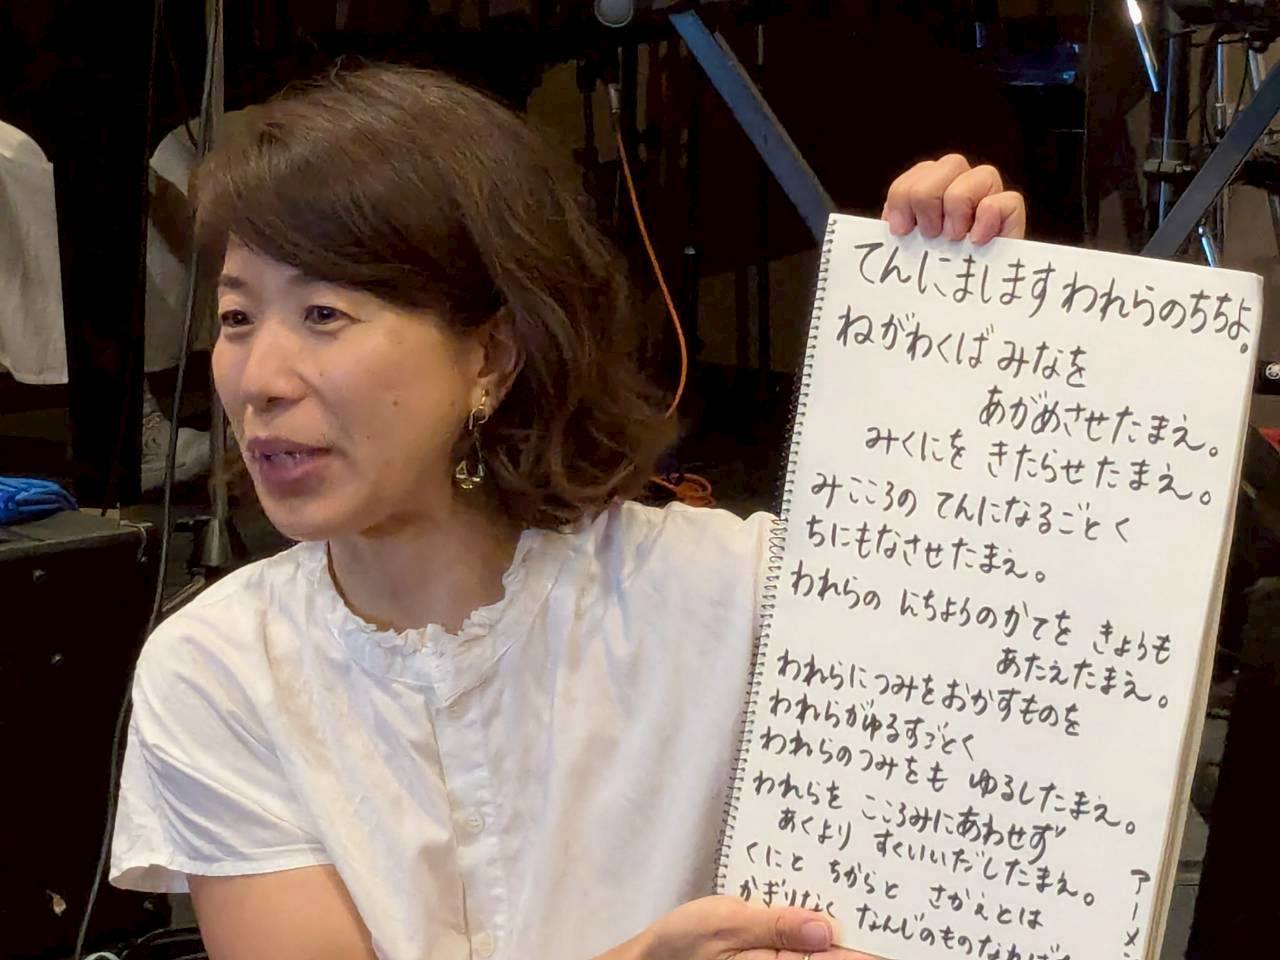 てんにまします われらのちちよ。
ねがわくば みなを
あがめさせたまえ。
みくにを きたらせたまえ。
みこころの てんになるごとく
ちにもなさせたまえ。
われらの にちようのかてを きょうも
あたえたまえ。
われらにつみをおかすものを
われらがゆるすごとく
われらのつみをも ゆるしたまえ。
われらを こころみにあわせず
あくより すくいいだしたまえ。
くにと ちからと さかえとは
かぎりなく なんじのものなればな
アーメン